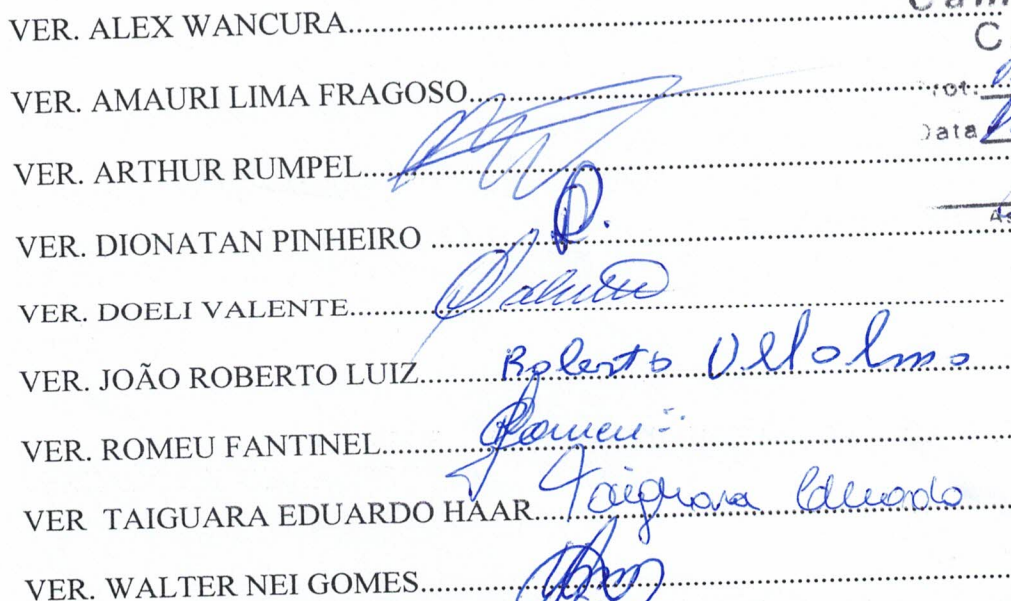 VER. ALEX WANCURA
C
VER. AMAURI LIMA FRAGOSO
rot:
VER. ARTHUR RUMPEL
Data
VER. DIONATAN PINHEIRO
VER. DOELI VALENTE Valente
VER. JOÃO ROBERTO LUIZ Roberto
VER. ROMEU FANTINEL Romeu
VER TAIGUARA EDUARDO HAAR Taiguara Eduardo
VER. WALTER NEI GOMES